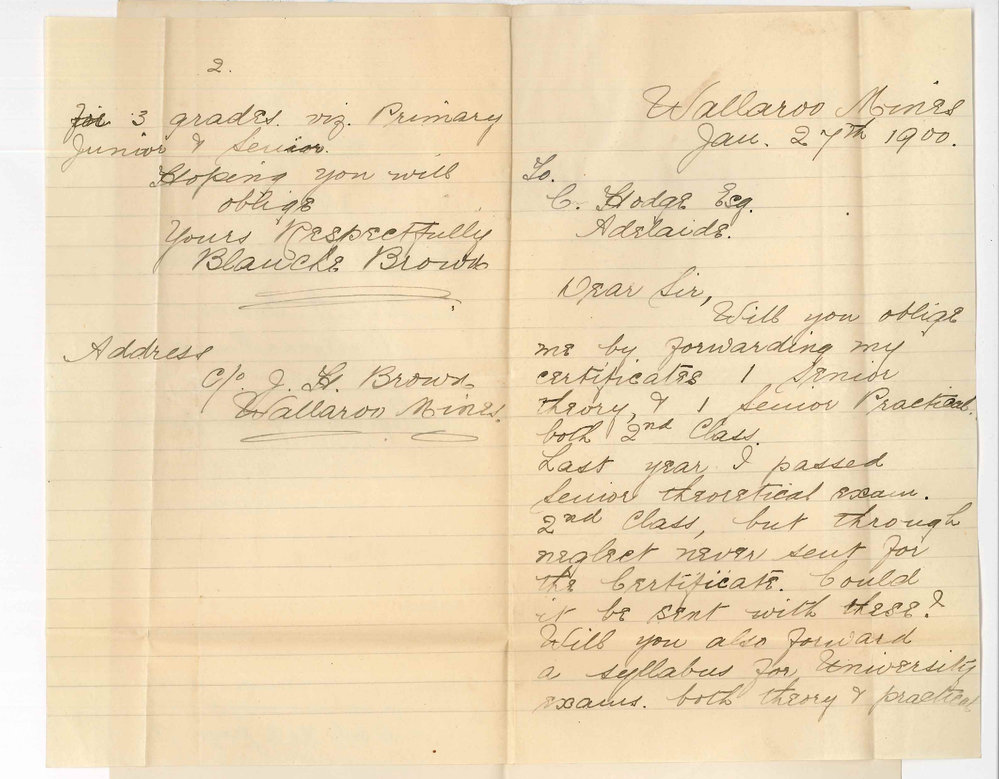 Wallaroo Mines
Jan. 27th 1900.
To.
C. Hodge Esq.
Adelaide.
Dear Sir,
Will you oblige
me by forwarding my
certificates 1 Senior
theory, & 1 Senior Practical,
both 2nd Class.
Last year I passed
Senior theoretical exam.
2nd Class, but through
neglect never sent for
the Certificate. Could
it be sent with these?
Will you also forward
a syllabus for University
exams. both theory & practical
2.
3 grades. viz. Primary
Junior & Senior.
Hoping you will
oblige
Yours Respectfully
Blanche Brown
Address
C/o. J. H. Brown
Wallaroo Mines.